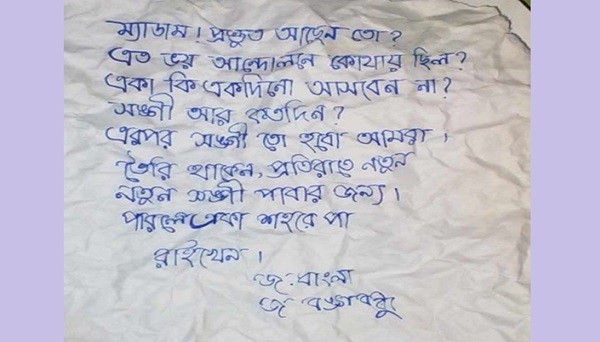 ম্যাডাম! প্রস্তুত আছেন তো?
এত ভয় আন্দোলনে কোথায় ছিল?
একা কি একদিনো আসবেন না?
সঙ্গী আর কতদিন?
এরপর সঙ্গী তো হবো আমরা।
তৈরি থাকেন, প্রতিরাতে নতুন
নতুন সঙ্গী পাবার জন্য।
পারলে একা শহরে পা
রাইখেন।
জ: বাংলা
জ বঙ্গবন্ধু